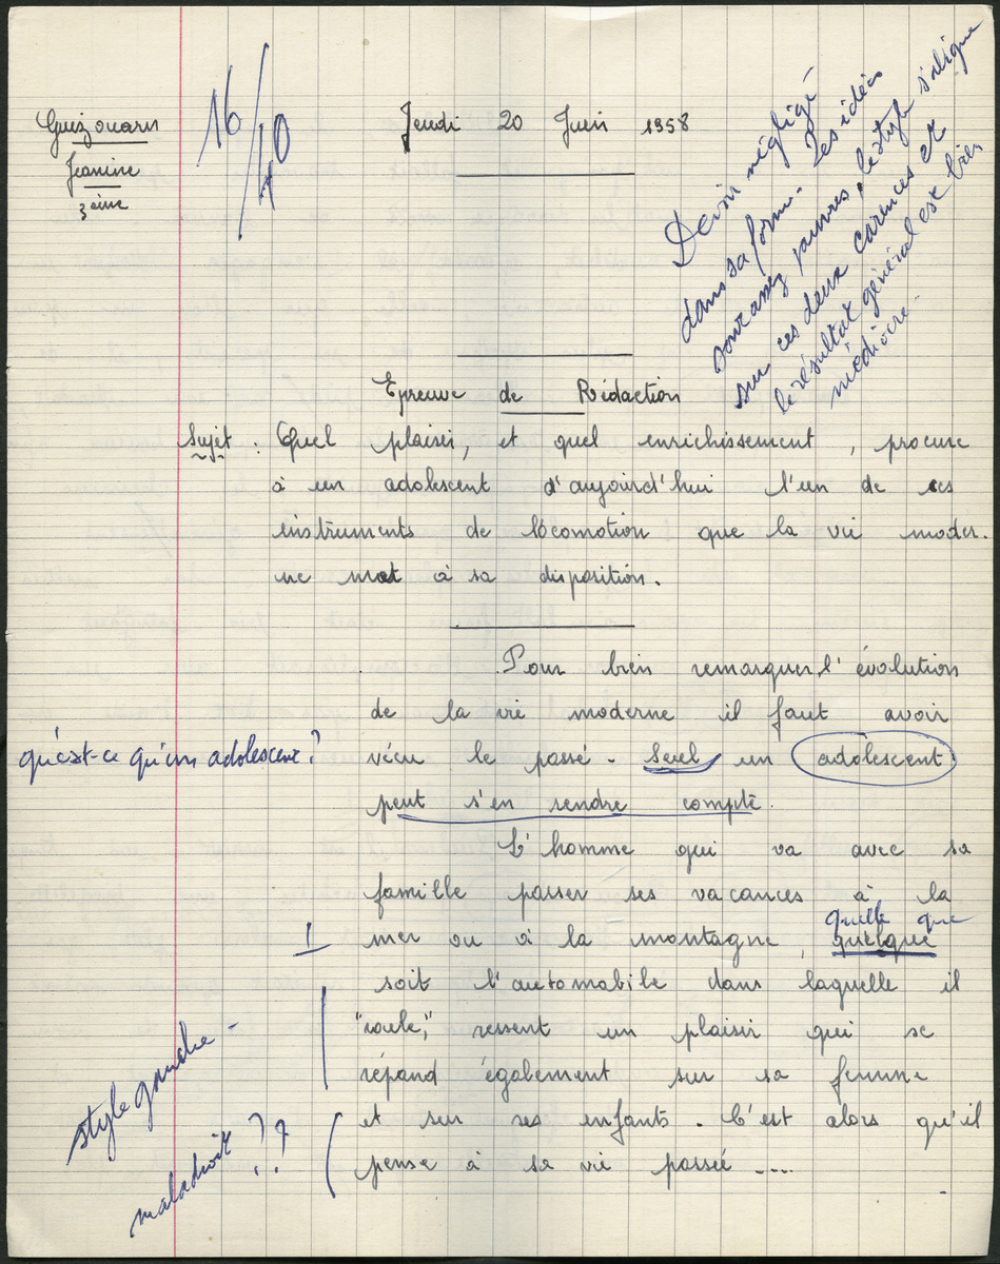 Guizouarn
Jeanine
3ème
16/40
Jeudi 20 Juin 1958
Devoir négligé
dans sa forme. Les idées
sont assez pauvres, le style s'aligne
sur ces deux carences et
le résultat général est bien
médiocre.
Epreuve de Rédaction
Sujet : Quel plaisir, et quel enrichissement, procure
à un adolescent d'aujourd'hui l'un de ces
instruments de locomotion que la vie moder-
ne met à sa disposition.
Pour bien remarquer l'évolution
de la vie moderne il faut avoir
qu'est-ce qu'un adolescent ?
vécu le passé. Seul un adolescent
peut s'en rendre compte.
L'homme qui va avec sa
famille passer ses vacances à la
quelle que
mer ou à la montagne, quelque
soit l'automobile dans laquelle il
"roule," ressent un plaisir qui se
répand également sur sa femme
et sur ses enfants. C'est alors qu'il
pense à sa vie passée ....
style gauche -
maladroit ??